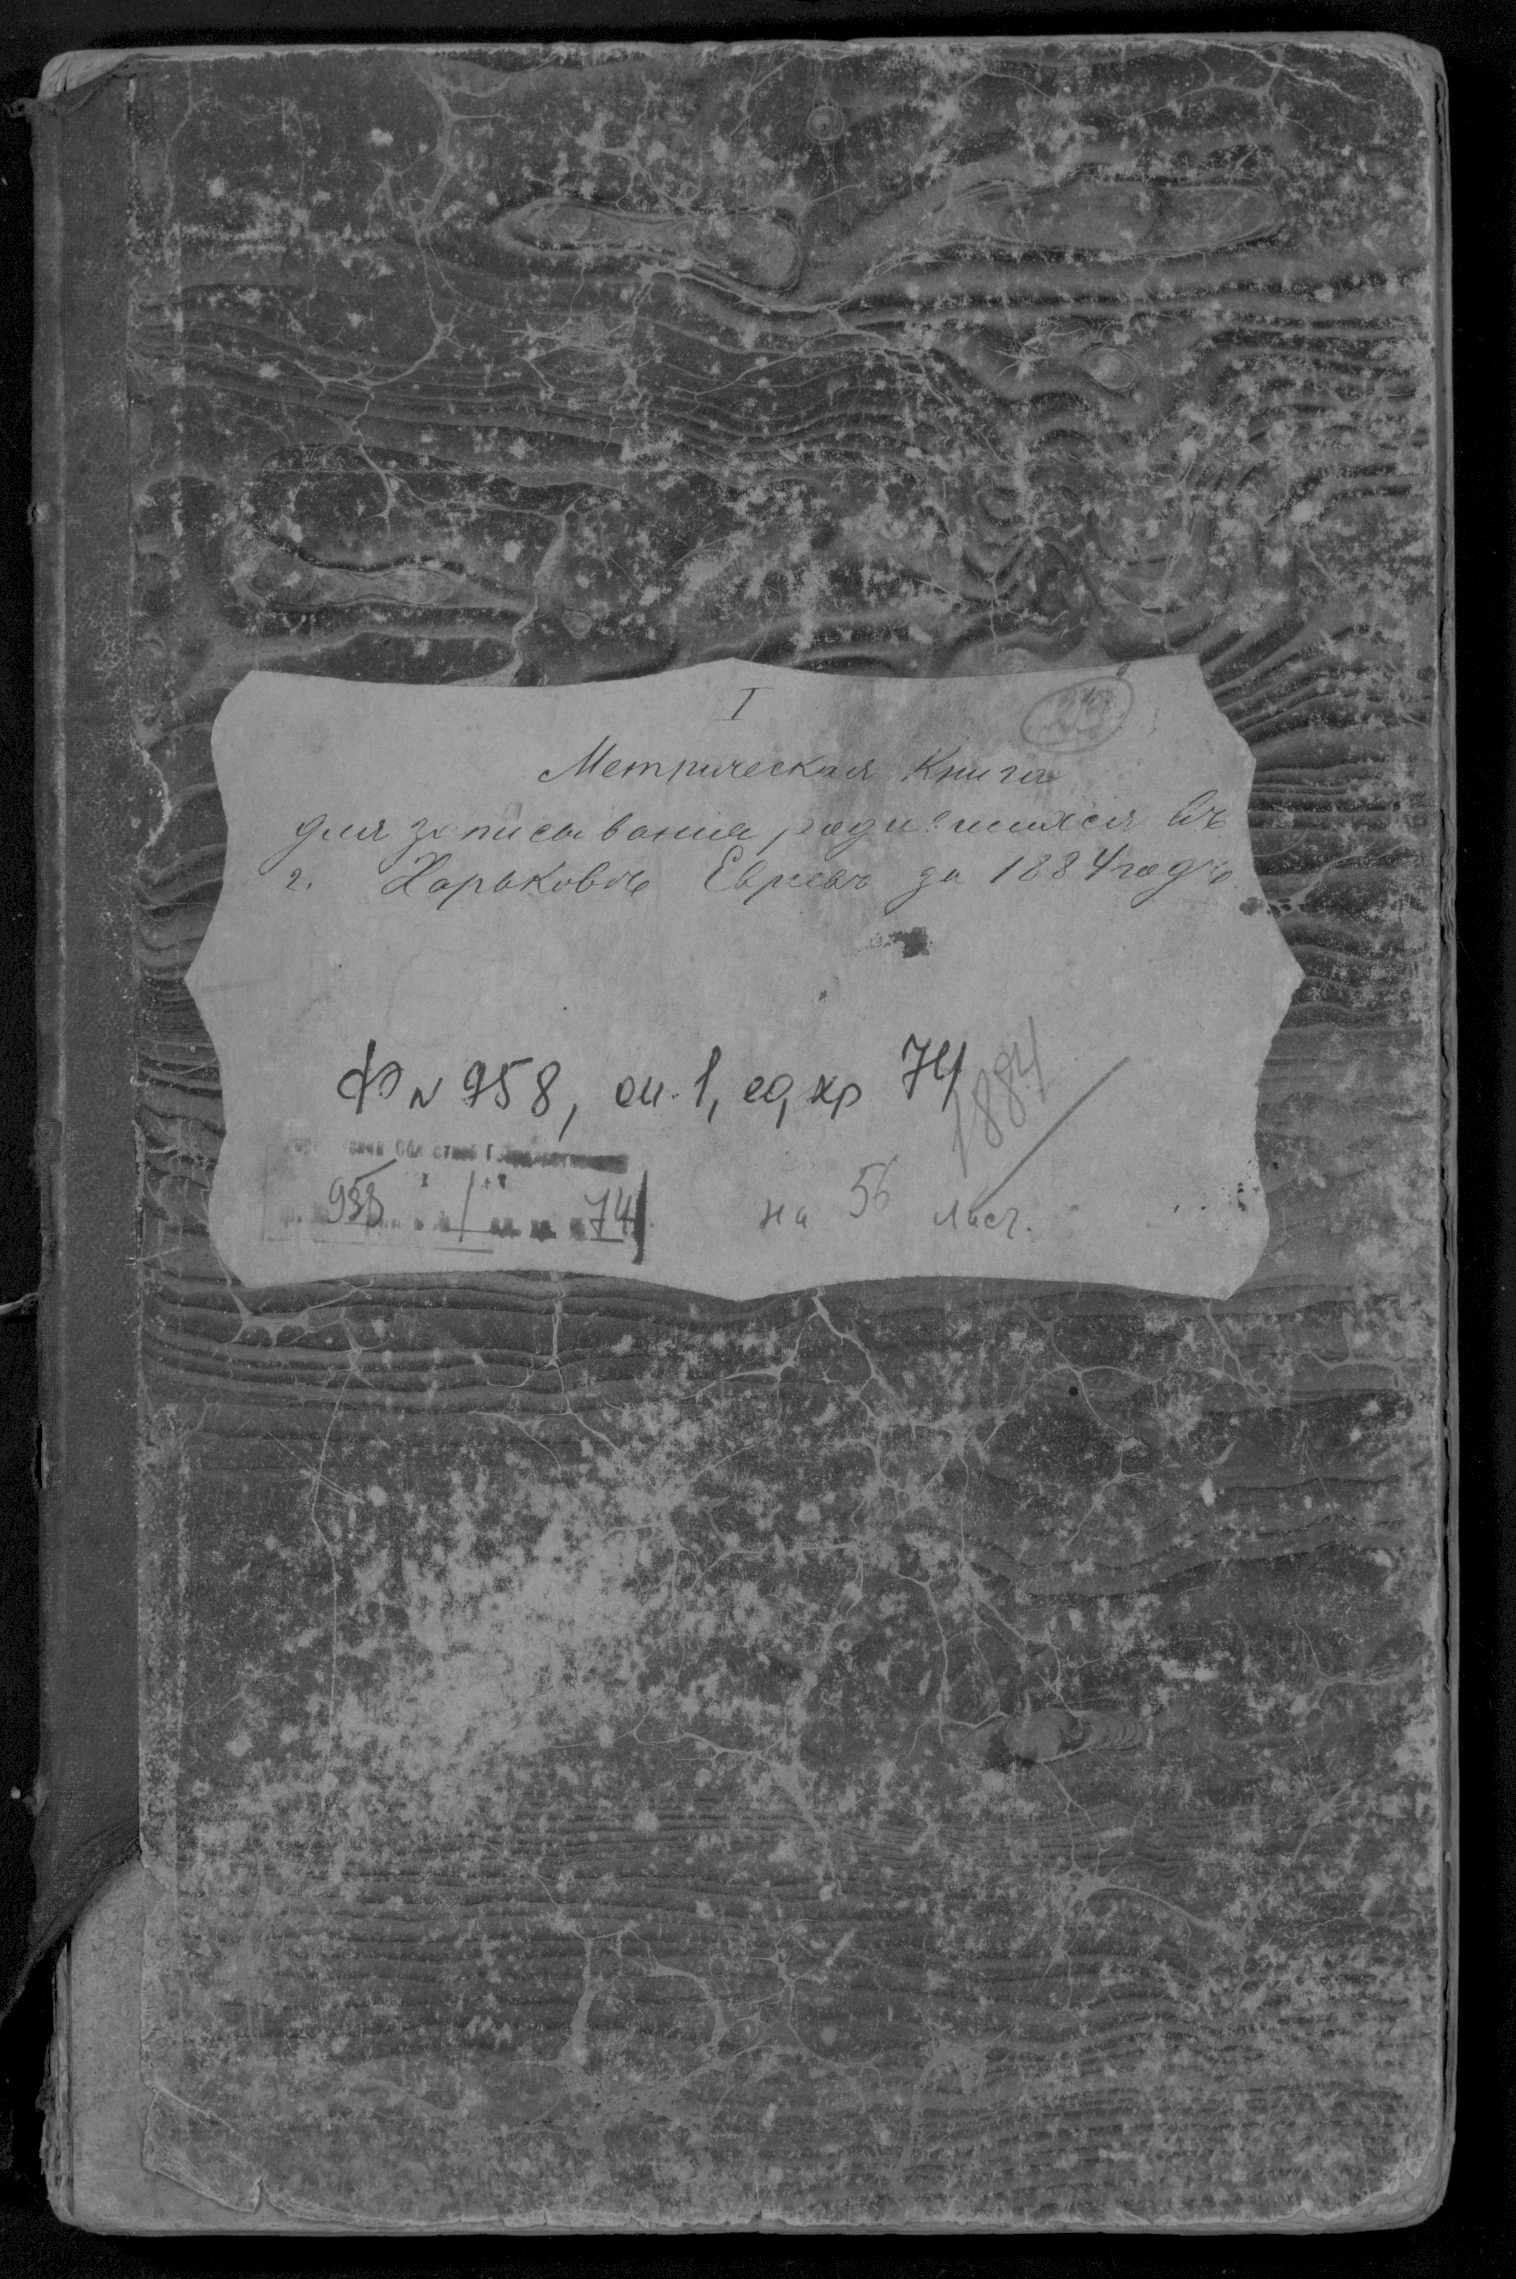 I
23
Метрическая Книга
для записыванія родившихся въ
г. Харьковѣ Евреевъ за 1884 годъ
Ф № 958, оп. 1, ед, хр 74
1884
Областной Г
958 1 74
на 56 лист.